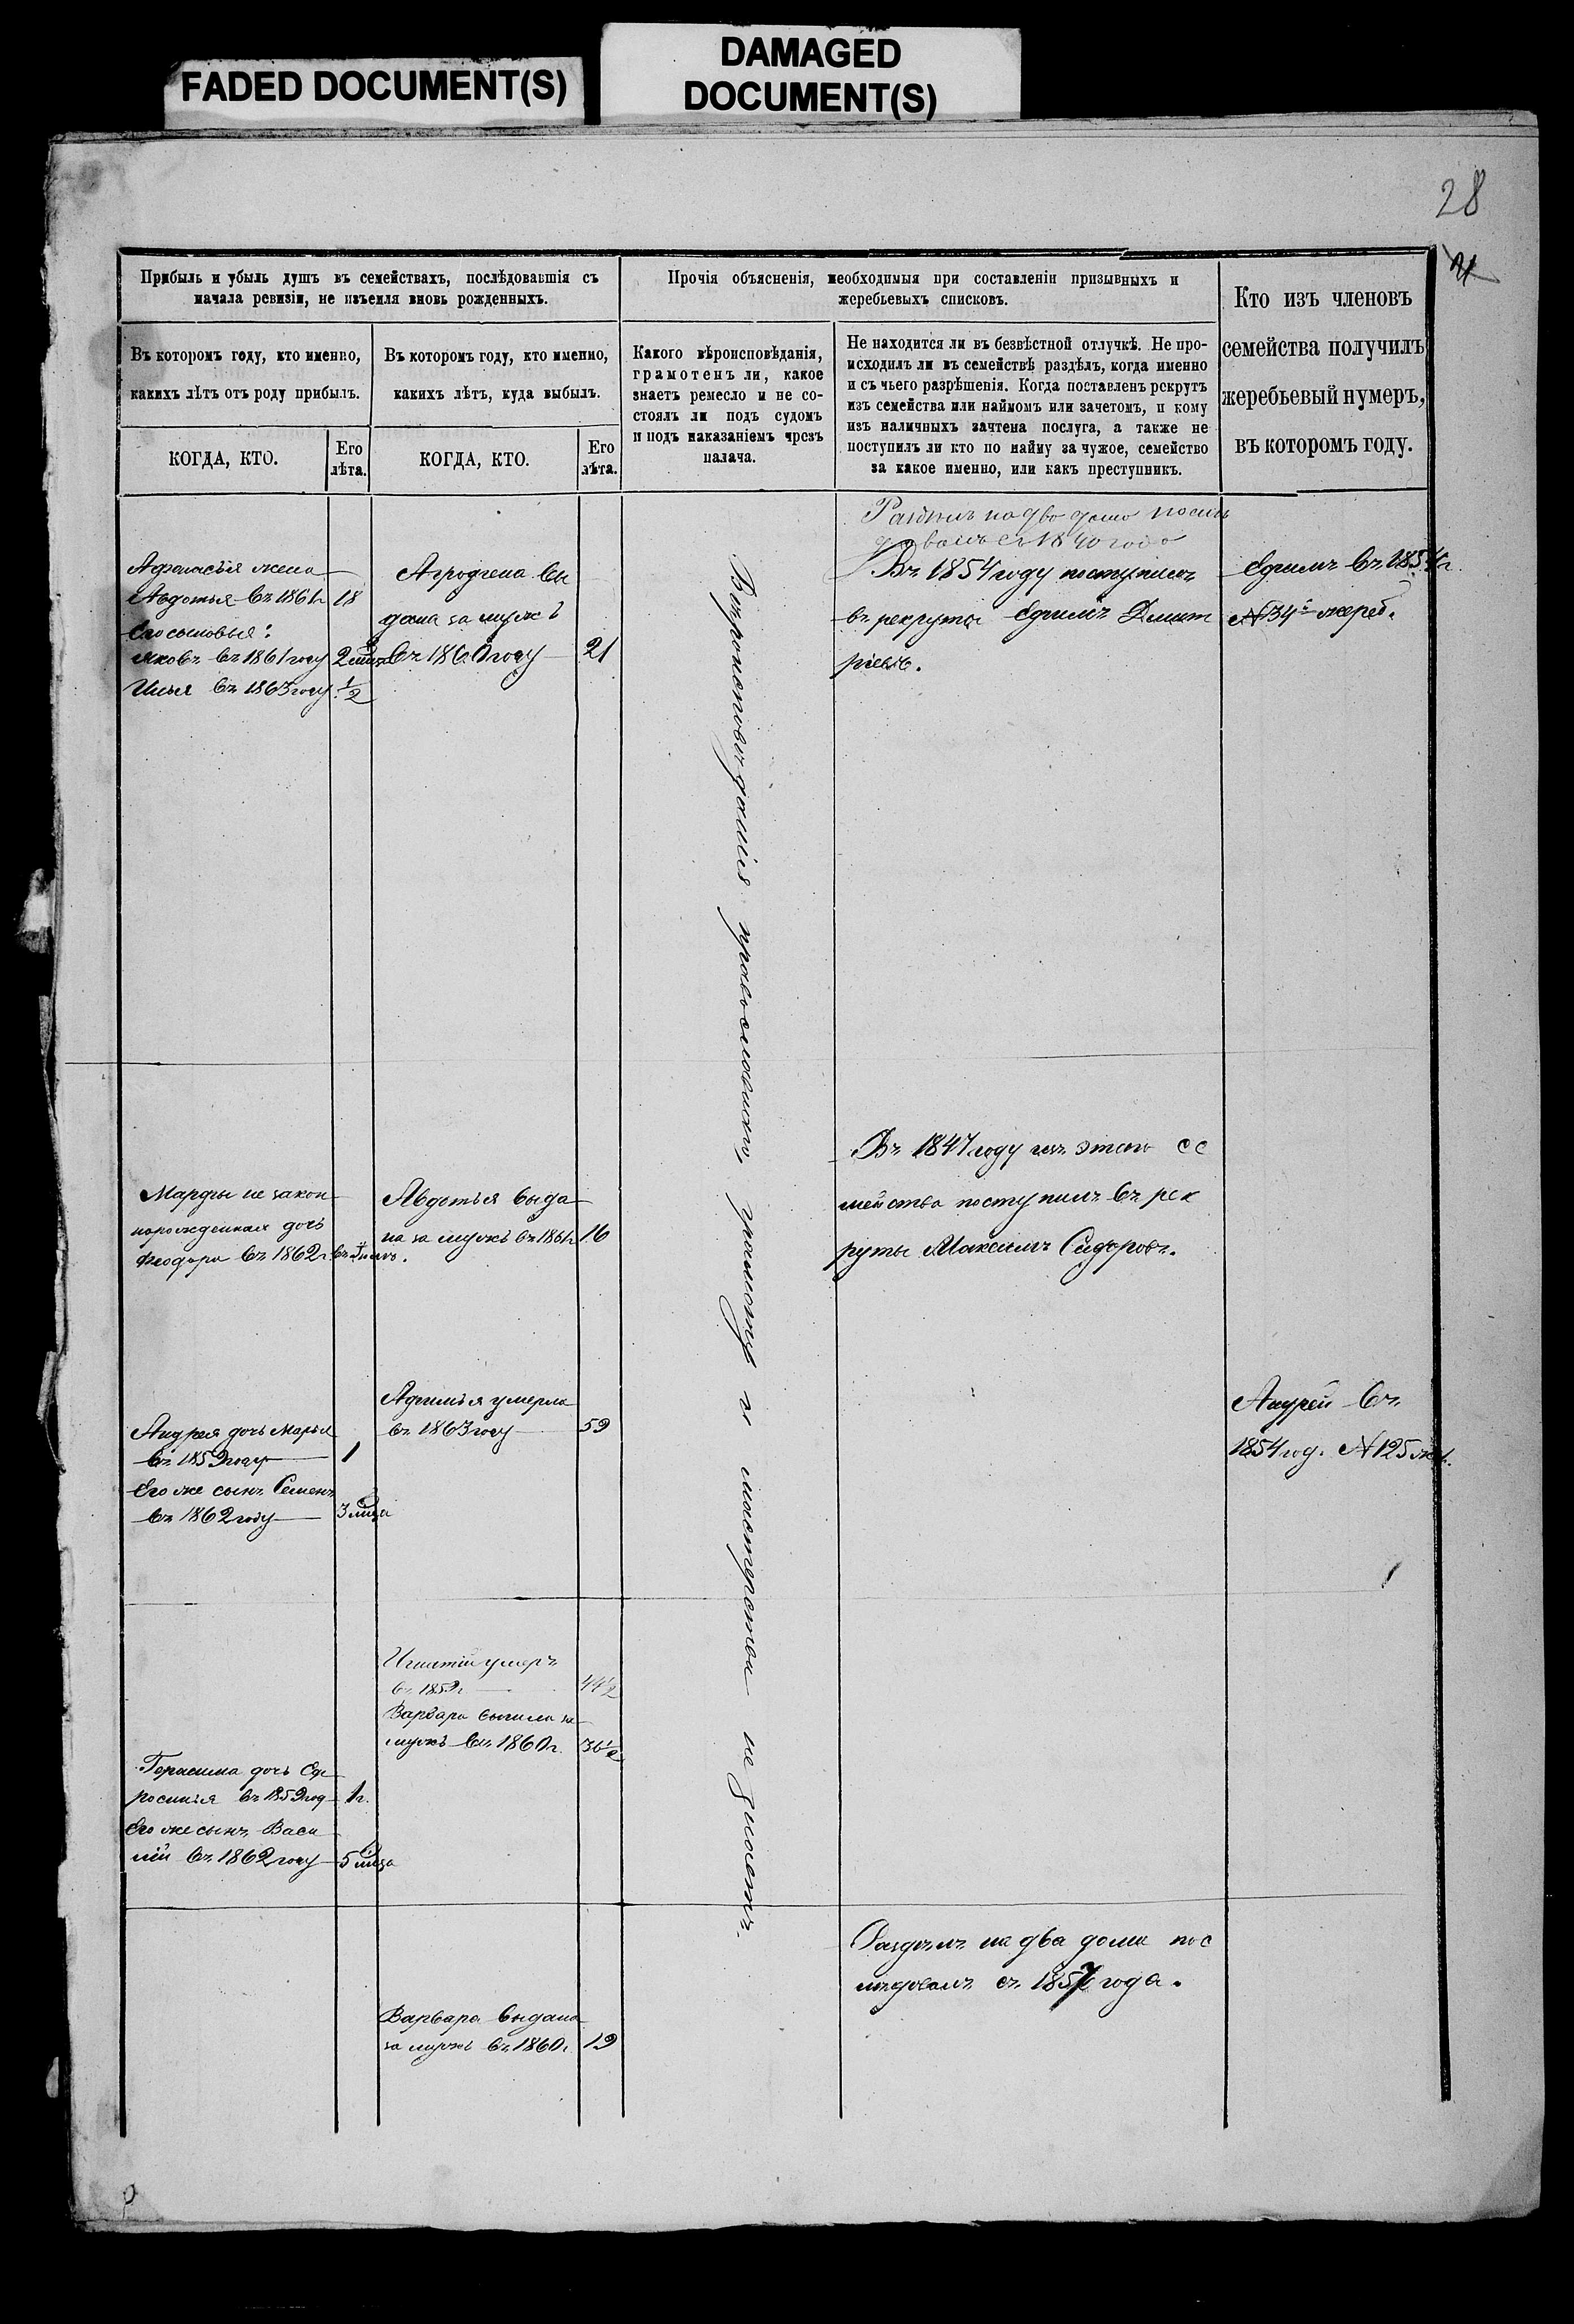 FADED DOCUMENT(S)
DAMAGED
DOCUMENT(S)
28
Прибыль и убыль душъ въ семействахъ, послѣдовавшія съ
начала ревизіи, не изъемля вновь рожденныхъ.
Въ которомъ году, кто именно,
какихъ лѣтъ отъ роду прибылъ.
КОГДА, КТО.
Его
лѣта.
Въ которомъ году, кто именно,
какихъ лѣтъ, куда выбылъ.
КОГДА, КТО.
Его
лѣта.
Прочія объясненія, необходимыя при составленіи призывныхъ и
жеребьевыхъ списковъ.
Какого вѣроисповѣданія,
грамотенъ ли, какое
знаетъ ремесло и не со-
стоялъ ли подъ судомъ
и подъ наказаніемъ чрезъ
палача.
Не находится ли въ безвѣстной отлучкѣ. Не про-
исходилъ ли въ семействѣ раздѣлъ, когда именно
и съ чьего разрѣшенія. Когда поставленъ рекрутъ
изъ семейства или наймомъ или зачетомъ, и кому
изъ наличныхъ зачтена послуга, а также не
поступилъ ли кто по найму за чужое, семейство
за какое именно, или какъ преступникъ.
Кто изъ членовъ
семейства получилъ
жеребьевый нумеръ,
въ которомъ году.
Афанасья жена
Авдотья въ 1861г 18
Его сыновья:
Яковъ въ 1861 году 2 мѣся
Илья въ 1863 году 1/2
Агрофена вы
дана за мужъ
въ 1860 году 21
Раздѣлъ на два дома
1840 года
Въ 1854 году поступилъ
въ рекруты Ефимъ Дмит
ріевъ.
Ефимъ въ 1854г.
№ 34й жереб.
Вѣроисповѣданія православнаго, грамоты и мастерства не знаетъ.
Марфы не закон
норожденная дочь
Феодора въ 1862г
Авдотья выда
на за мужъ въ 1861г 16
Въ 1847 году изъ этого се
мейства поступилъ въ рек
руты Максимъ Сидоровъ.
Андрея дочь Марья
въ 1859 году 1
Его же сынъ Семенъ
въ 1862 году 3 мѣся
Афимья умерла
въ 1863 году 59
Андрей въ
1854 год. № 125 жер.
Игнатій умеръ
въ 1859г 44 1/2
Варвара вышла за
мужъ въ 1860г. 36 1/2
Герасима дочь Еф
росинья въ 1859 год 1г.
Его же сынъ Васи
лій въ 1862 году 5 мѣся
Раздѣлъ на два дома пос
лѣдовалъ съ 1857 года.
Варвара выдана
за мужъ въ 1860г 19